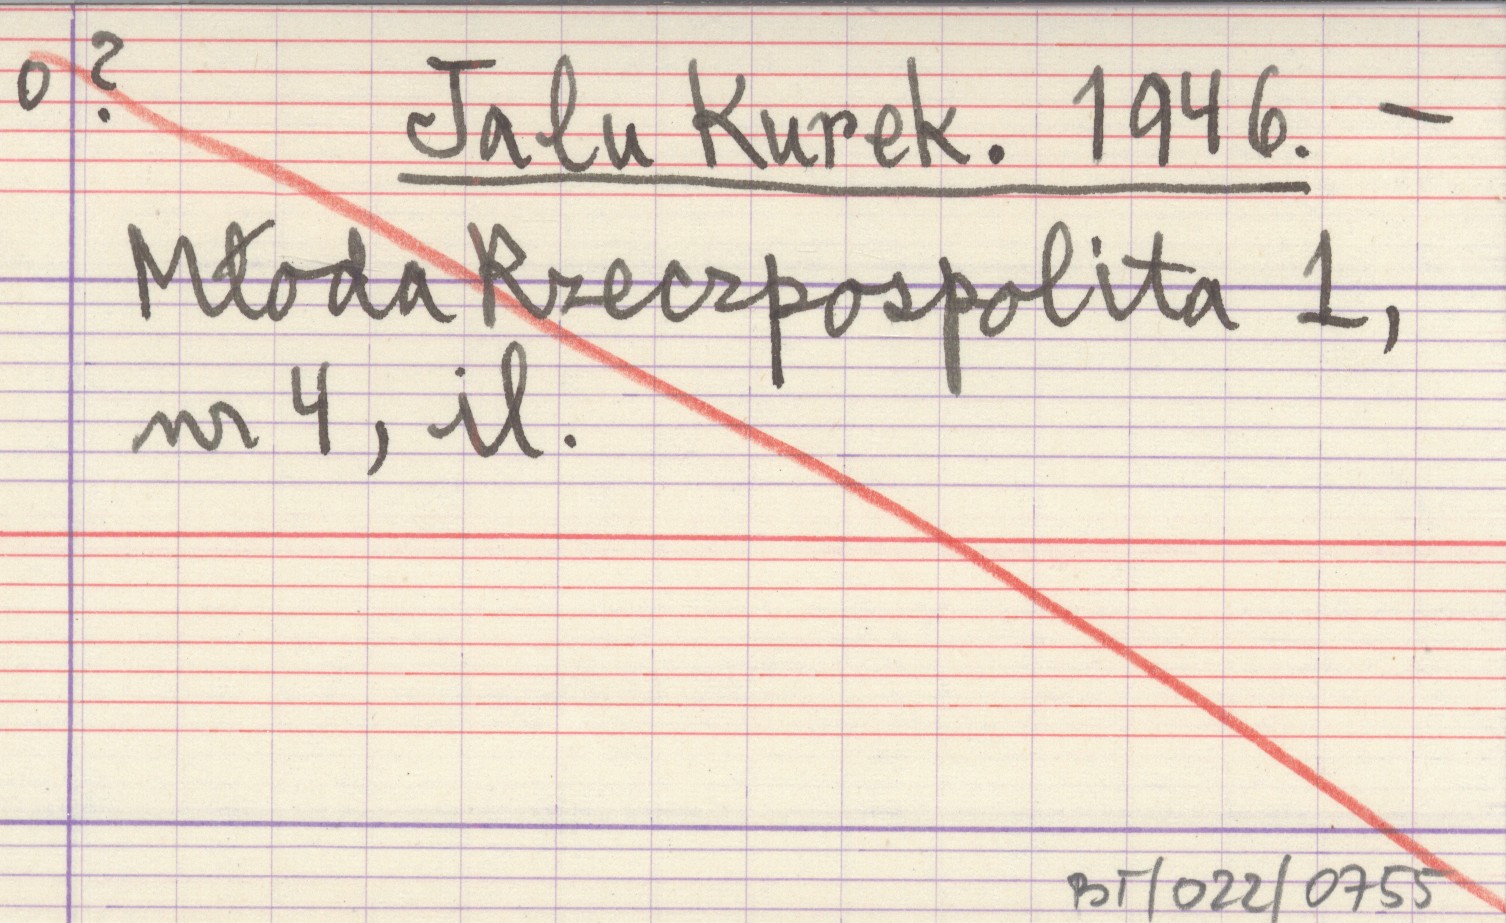 o ? Jalu Kurek. 1946. –
Młoda Rzeczpospolita 1,
nr 4, il.
BT/022/0755